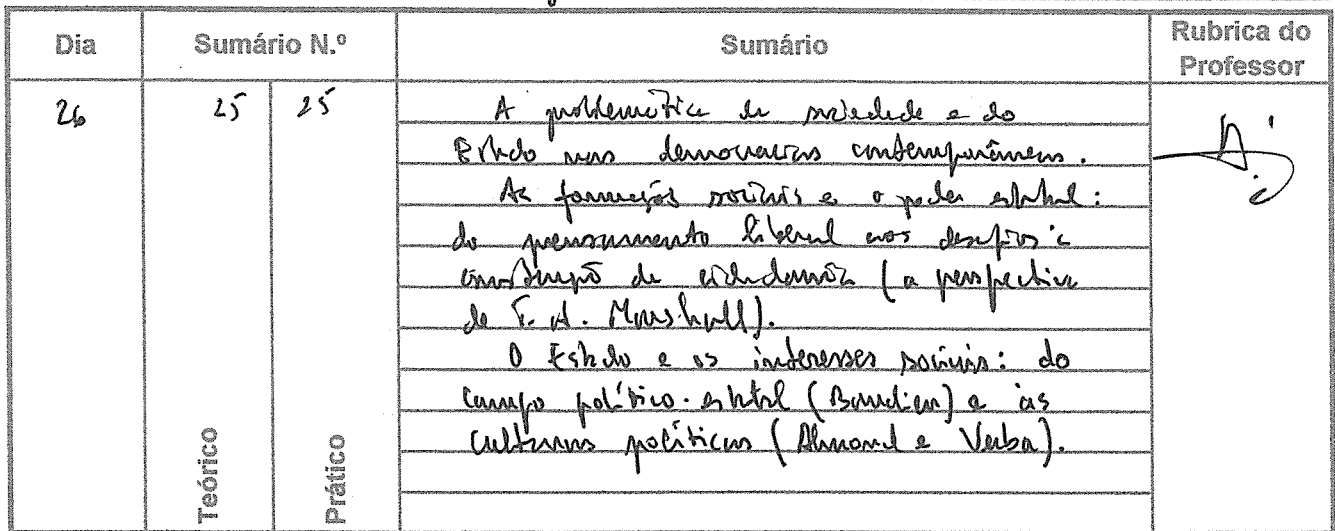 Dia Sumário N.º Sumário Rubrica do Professor
26 25 25 A problemática da sociedade e do
Estado nas democracias contemporâneas.
As formações sociais e o poder estatal:
do pensamento liberal aos desafios à
construção da cidadania (a perspectiva
de T. H. Marshall).
O Estado e os interesses sociais: do
campo político-estatal (Bourdieu) e às
culturas políticas (Almond e Verba).
Teórico Prático